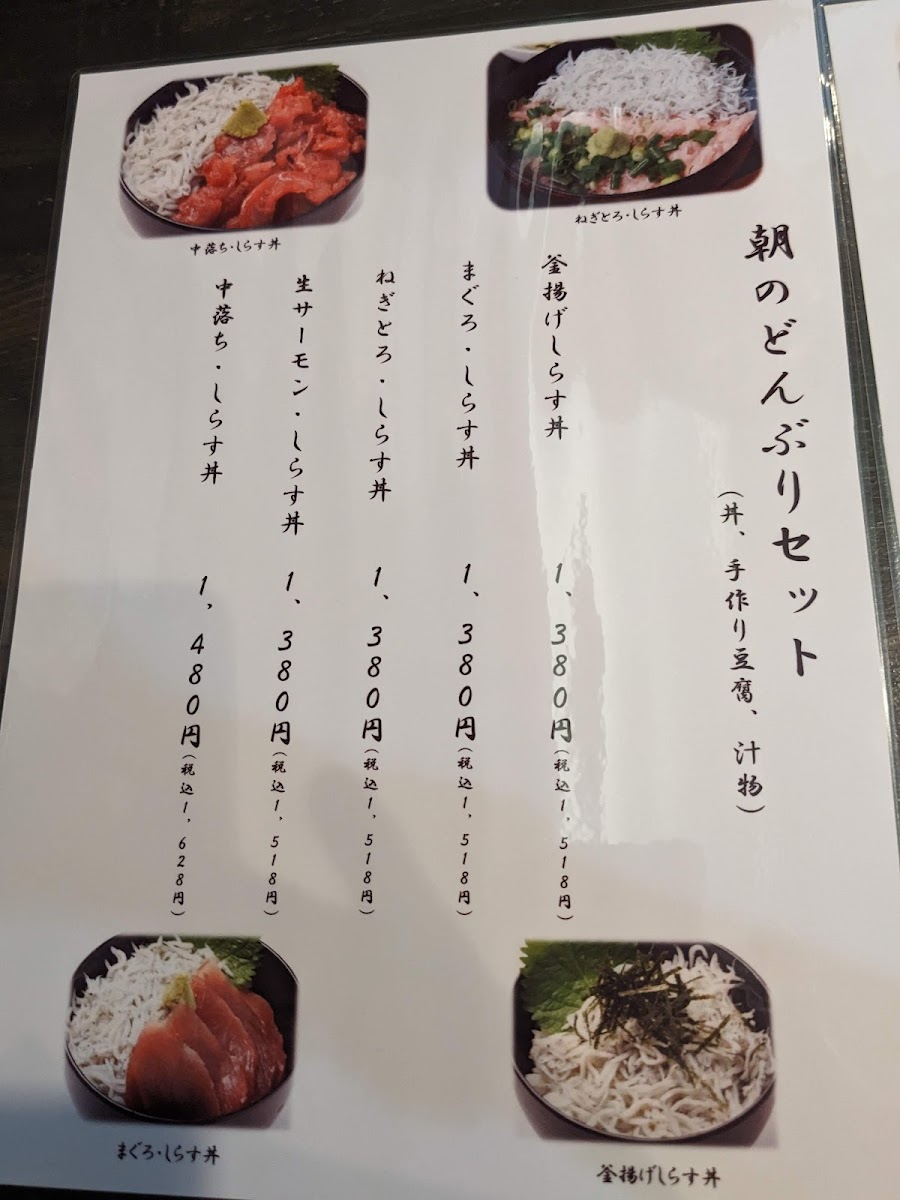 朝のどんぶりセット
(丼、手作り豆腐、汁物)
釜揚げしらす丼 1、380円(税込1,518円)
まぐろ・しらす丼 1、380円(税込1,518円)
ねぎとろ・しらす丼 1、380円(税込1,518円)
生サーモン・しらす丼 1、380円(税込1,518円)
中落ち・しらす丼 1,480円(税込1,628円)
ねぎとろ・しらす丼
中落ち・しらす丼
釜揚げしらす丼
まぐろ・しらす丼